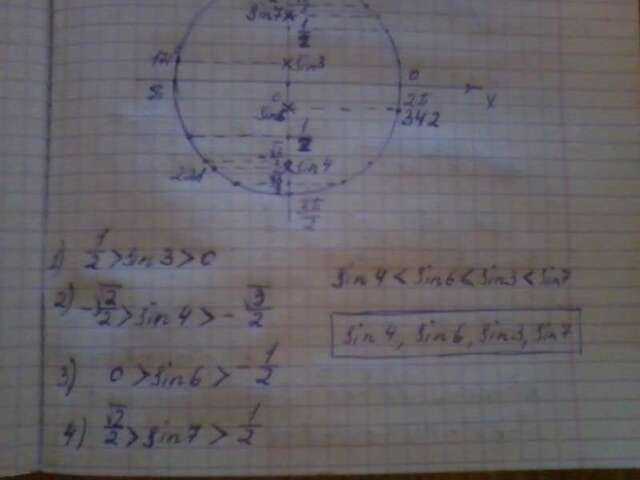 sin7
1/2
sin3
0
π
2π
342
x
sin6
1/2
sin4
3π/2
1) 1/2 > sin3 > 0
2) -√2/2 > sin4 > -√3/2
3) 0 > sin6 > -1/2
4) √2/2 > sin7 > 1/2
sin4 < sin6 < sin3 < sin7
sin4, sin6, sin3, sin7